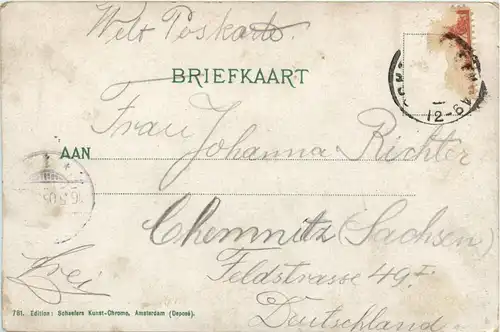 Welt Postkarte.
BRIEFKAART
12-6
Frau Johanna Richter
AAN
Chemnitz (Sachsen)
Feldstrasse 49 I
Frei
Deutschland
781. Edition: Schaefers Kunst-Chromo, Amsterdam (Deposé).